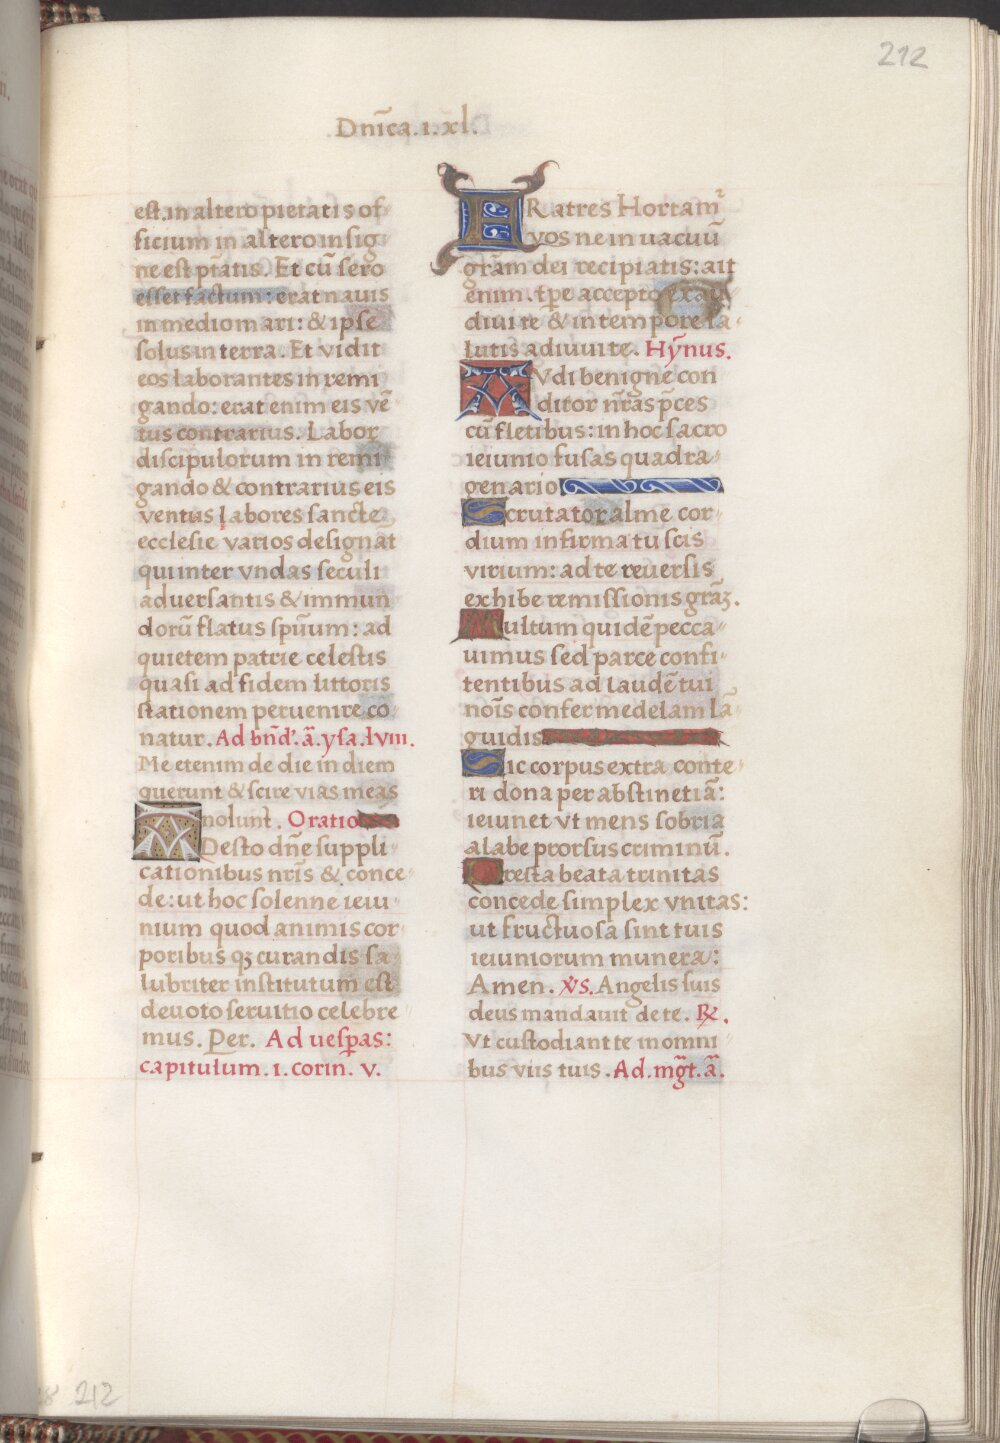 212
Dn̄ica.i.xl.
est.in altero pietatis of-
ficium in altero insig
ne est ptātis. Et cū sero
esset factum: erat nauis
in medio mari: & ipse
solus in terra. Et vidit
eos laborantes in remi
gando: erat enim eis vē
tus contrarius. Labor
discipulorum in remi
gando & contrarius eis
ventus labores sancte
ecclesie varios designat
qui inter vndas seculi
adversantis & immun
dorū flatus spūum: ad
quietem patrie celestis
quasi ad fidem littoris
stationem pervenire co
natur. Ad bn̄d'. ā. ysa. lviii.
Me etenim de die in diem
querunt & scire vias meas
nolunt. Oratio
ADesto dn̄e suppli
cationibus nr̄is & conce
de: ut hoc solenne ieiu
nium quod animis cor
poribus qꝫ curandis sa
lubriter institutum est
devoto servitio celebre
mus. Per. Ad vesp̄as:
capitulum. i. corin. v.
FRatres Hortam̄
vos ne in uacuū
grām dei recipiatis: ait
enim. tp̄e accepto exau
divi te & in tempore sa-
lutis adiuvi te. Hȳnus.
AVdi benigne con
ditor nr̄as p̄ces
cū fletibus: in hoc sacro
ieiunio fusas quadra-
genario
Scrutator alme cor
dium infirma tu scis
virium: ad te reversis
exhibe remissionis grāꝫ.
Multum quidē pecca-
uimus sed parce confi-
tentibus ad laudē tui
noīs confer medelam lā
guidis
Sic corpus extra conte-
ri dona per abstinētiā:
ieiunet vt mens sobria
a labe prorsus criminū.
Presta beata trinitas
concede simplex vnitas:
ut fructuosa sint tuis
ieiuniorum munera:
Amen. v̄s. Angelis suis
deus mandavit de te. ℟.
Vt custodiant te in omni
bus viis tuis. Ad. mḡt. ā.
212